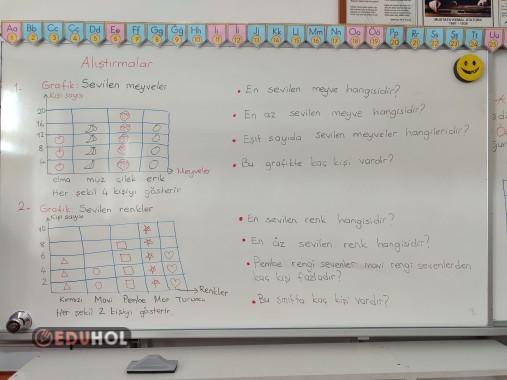 Aa Bb Cc Çç Dd Ee Ff Gg Ğğ Hh Iı İi Jj Kk Ll Mm Nn Oo Öö Pp Rr Ss Şş Tt Uu
MUSTAFA KEMAL ATATÜRK
Alıştırmalar
1. Grafik: Sevilen meyveler
Kişi sayısı
20
16
12
8
4
elma muz çilek erik
Meyveler
Her şekil 4 kişiyi gösterir.
• En sevilen meyve hangisidir?
• En az sevilen meyve hangisidir?
• Eşit sayıda sevilen meyveler hangileridir?
• Bu grafikte kaç kişi vardır?
2. Grafik: Sevilen renkler
Kişi sayısı
10
8
6
4
2
Kırmızı Mavi Pembe Mor Turuncu
Renkler
Her şekil 2 kişiyi gösterir.
• En sevilen renk hangisidir?
• En az sevilen renk hangisidir?
• Pembe rengi sevenler mavi rengi sevenlerden
kaç kişi fazladır?
• Bu sınıfta kaç kişi vardır?
EDUHOL